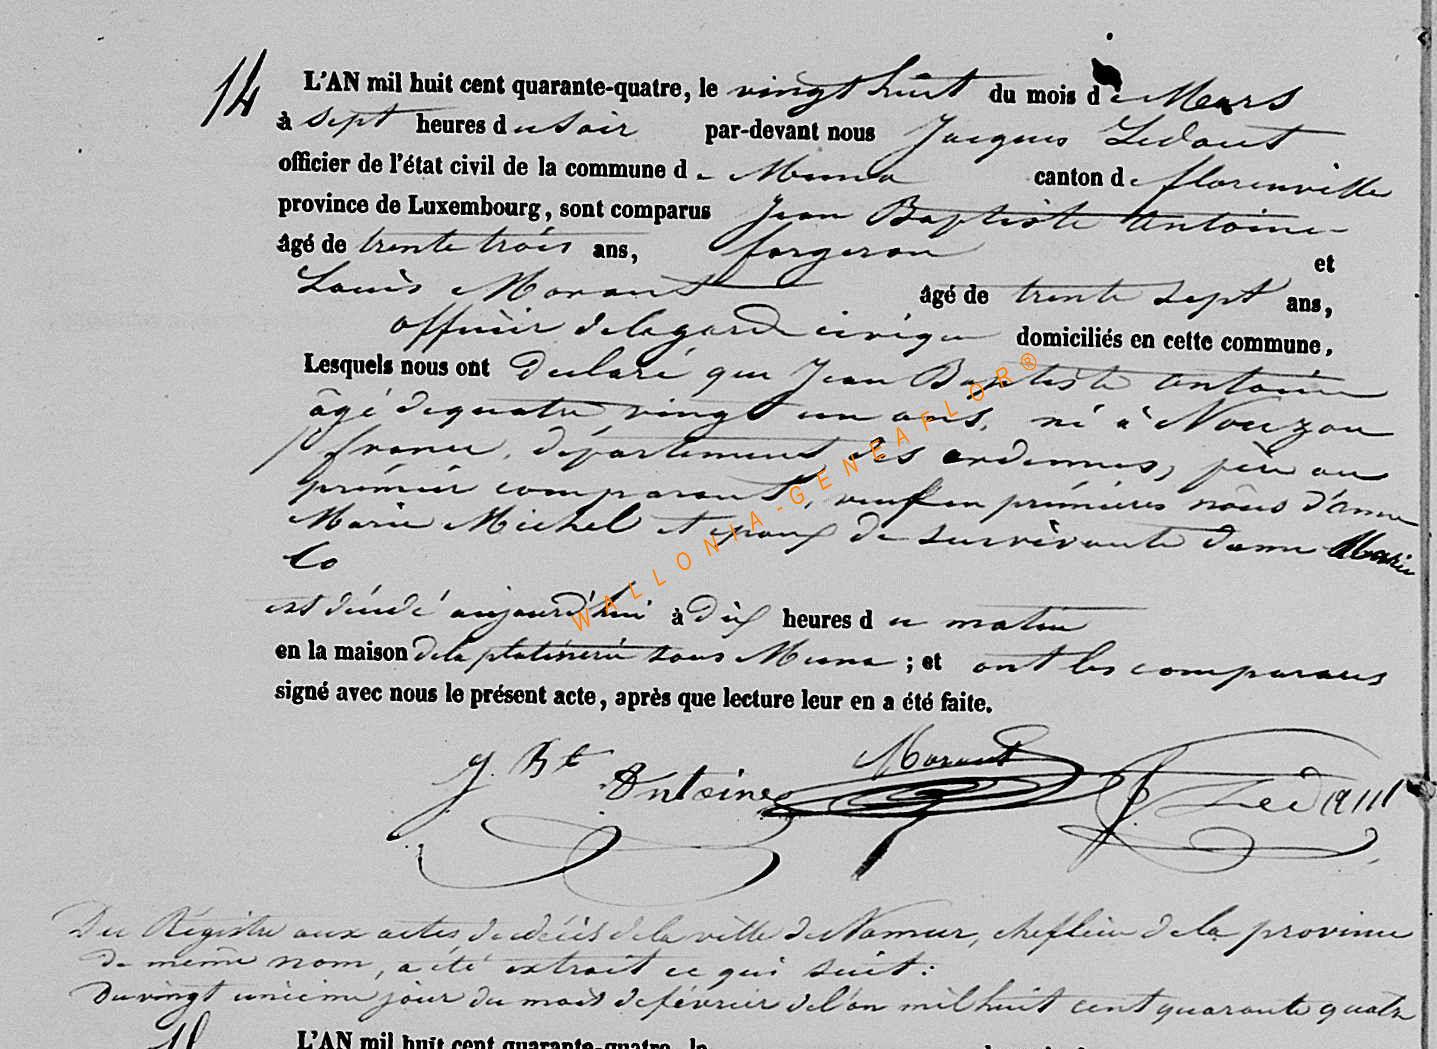 14
L'AN mil huit cent quarante-quatre, le vingt huit du mois de Mars
à sept heures du soir par-devant nous Jacques Ledant
officier de l'état civil de la commune de Muno canton de florenville
province de Luxembourg, sont comparus Jean Baptiste Antoine
âgé de trente trois ans, forgeron et
Louis Morant âgé de trente sept ans,
officier de la garde civique domiciliés en cette commune.
Lesquels nous ont déclaré que Jean Baptiste Antoine
âgé de quatre vingt un ans, né à Nouzon
france, département des ardennes, père au
prémier comparant, veuf en prémières noces d'anne
Marie Michel et époux de survivante dame Marie
Co
est décédé aujourd'hui à dix heures du matin
en la maison de la platinerie sous Muno ; et ont les comparans
signé avec nous le présent acte, après que lecture leur en a été faite.
J. Bte Antoine Morant
Du Régistre aux actes de décès de la ville de Namur, cheflieu de la province
de même nom, a été extrait ce qui suit :
Du vingt unième jour du mois de février de l'an mil huit cent quarante quatre
L'AN mil huit cent quarante-quatre, le
WALLONIA-GENEAFLOR®